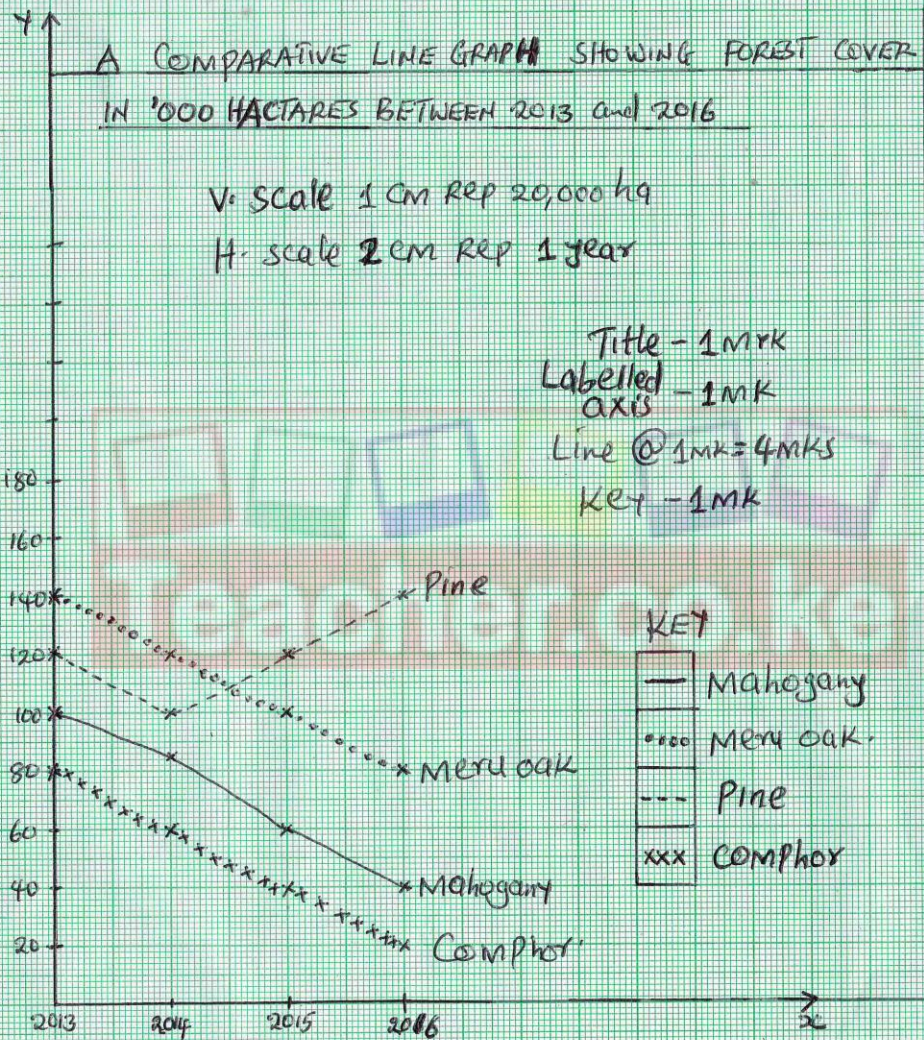 Y
A COMPARATIVE LINE GRAPH SHOWING FOREST COVER
IN '000 HACTARES BETWEEN 2013 and 2016
V. scale 1 cm Rep 20,000 ha
H. scale 2 cm Rep 1 year
Title - 1 Mrk
Labelled axis - 1 MK
Line @ 1MK = 4MKS
Key - 1 MK
180
160
140
120
100
80
60
40
20
Pine
Meru oak
Mahogany
Comphor
KEY
Mahogany
Meru oak.
Pine
xxx Comphor
2013 2014 2015 2016 x
teacher.co.ke